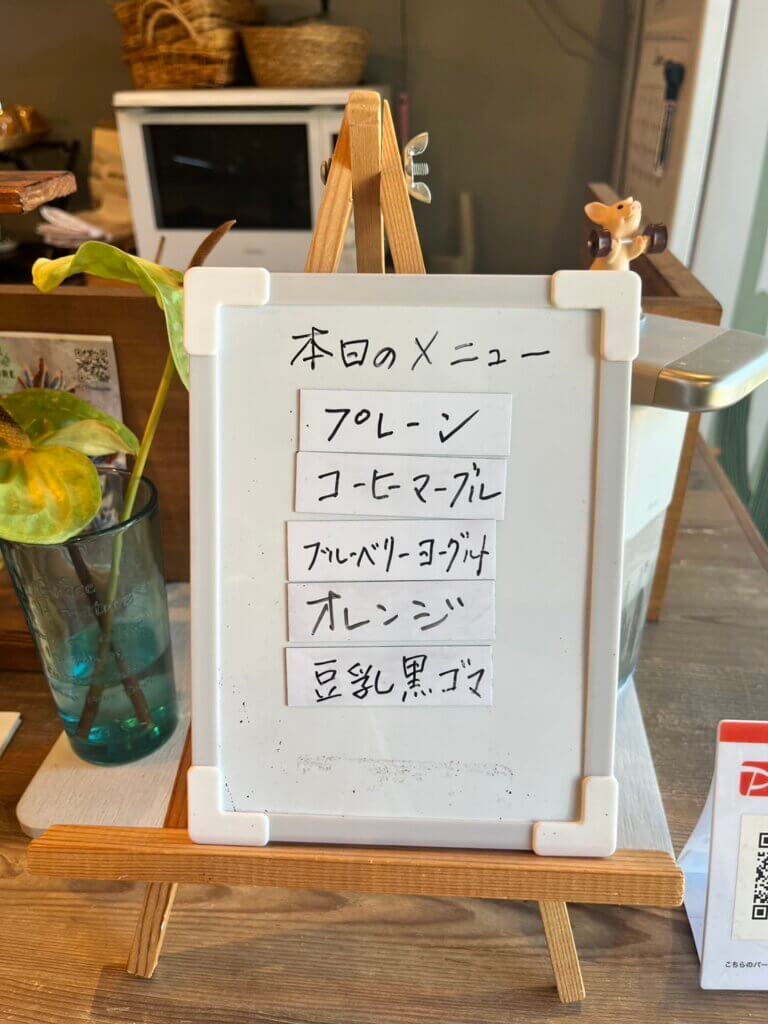 本日のメニュー
プレーン
コーヒーマーブル
ブルーベリーヨーグルト
オレンジ
豆乳黒ゴマ
こちらのバー